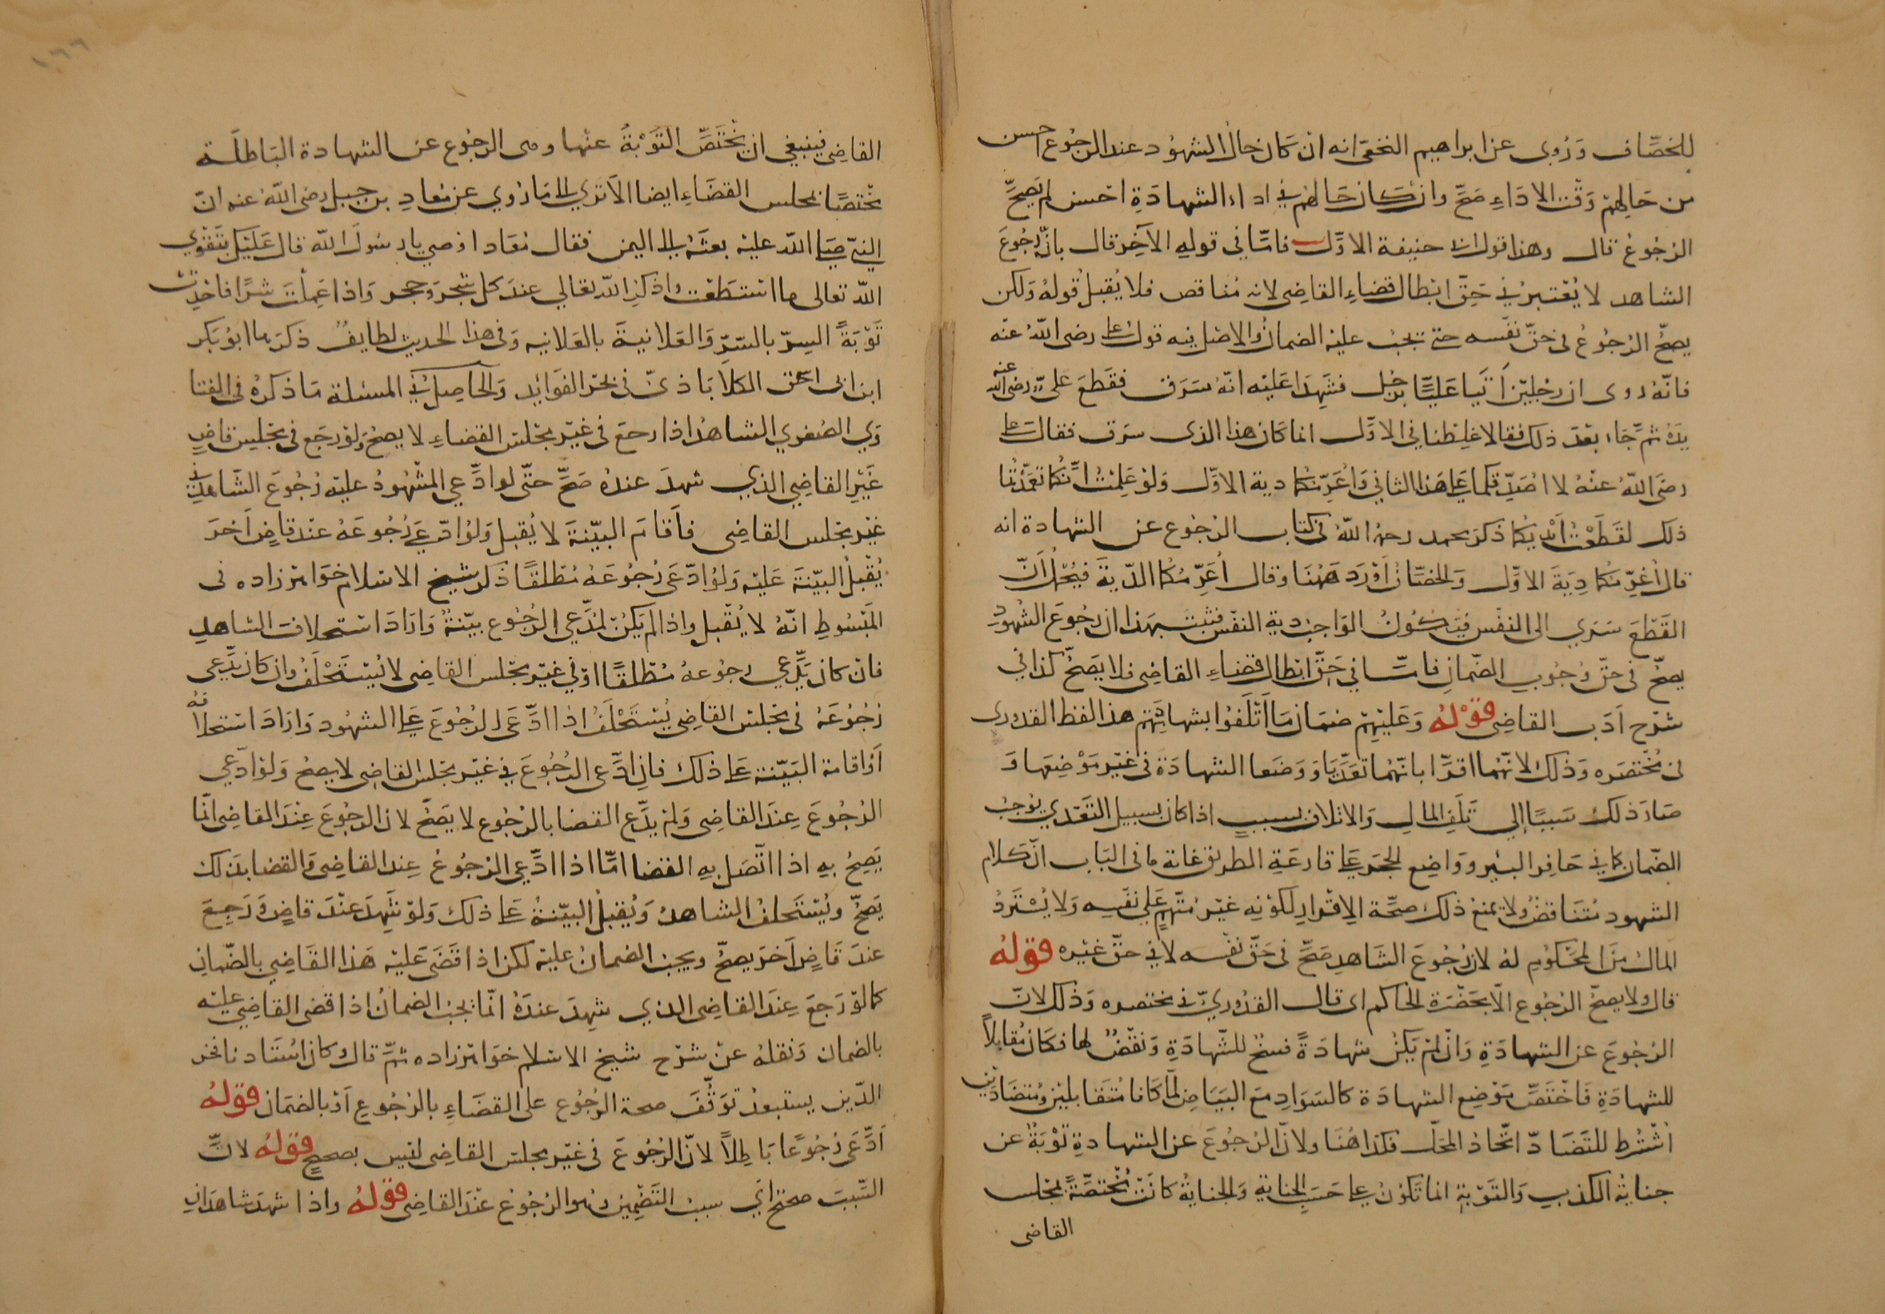 للخصاف وروى عن ابراهيم النخعى انه ان كان حال الشهود عند الرجوع احسن
من حالهم وقت الاداء صح وان كان حالهم فى اداء الشهادة احسن لم يصح
الرجوع قال وهذا قول ابى حنيفة الاول فاما فى قوله الآخر قال بان رجوع
الشاهد لا يعتبر فى حق ابطال قضاء القاضى لانه مناقض فلا يقبل قوله ولكن
يصح الرجوع فى حق نفسه حتى تجب عليه الضمان والاصل فيه قول على رضى الله عنه
فانه روى ان رجلين أتيا عليا برجل فشهدا عليه انه سرق فقطع على رضى الله عنه
يده ثم جاءا بعد ذلك فقالا غلطنا فى الاول انما كان هذا الذى سرق فقال على
رضى الله عنه لا اصدقكما على هذا الثانى وأغرمكما دية الاول ولو علمت انكما تعمدتما
ذلك لقطعت أيديكما ذكر محمد رحمه الله فى كتاب الرجوع عن الشهادة انه
قال أغرمكما دية الاول والخصاف أورد ههنا وقال أغرمكما الدية فيحمل أن
القطع سرى الى النفس فيكون الواجب دية النفس فثبت بهذا ان رجوع الشهود
يصح فى حق وجوب الضمان فاما فى حق ابطال قضاء القاضى فلا يصح كذا فى
شرح ادب القاضى قوله وعليهم ضمان ما أتلفوا بشهادتهم هذا لفظ القدورى
فى مختصره وذلك لانهما اقرا بانهما تعديا ووضعا الشهادة فى غير موضعها و
صار ذلك سببا إلى تلف المال والاتلاف بسبب اذا كان بسبيل التعدي يوجب
الضمان كما فى حافر البئر وواضع الحجر على قارعة الطريق غاية ما فى الباب ان كلام
الشهود متناقض ولا يمنع ذلك صحة الاقرار لكونه غير متهم على نفسه ولا يسترد
المال من المحكوم له لان رجوع الشاهد صح فى حق نفسه لا فى حق غيره قوله
قال ولا يصح الرجوع الا بحضرة الحاكم اى قال القدورى فى مختصره وذلك لان
الرجوع عن الشهادة وان لم يكن شهادة فسخ للشهادة ونقض لها فكان مقابلا
للشهادة فاختص موضع الشهادة كالسواد مع البياض لما كانا متقابلين ومتضادين
اشترط للتضاد اتحاد المحل فكذا هنا ولان الرجوع عن الشهادة توبة عن
جناية الكذب والتوبة انما تكون على حسب الجناية والجناية كانت مختصة بمجلس
القاضى
القاضى فينبغى ان يختص التوبة عنها وهى الرجوع عن الشهادة الباطلة
مختصا بمجلس القضاء ايضا الا ترى الى ما روي عن معاذ بن جبل رضى الله عنه ان
النبى صلى الله عليه بعثه الى اليمن فقال معاذ اوصني يا رسول الله قال عليك بتقوى
الله تعالى ما استطعت واذكر الله تعالى عند كل شجر وحجر واذا عملت شرا فاحدث
توبة السر بالسر والعلانية بالعلانيه وفى هذا الحديث لطايف ذكرها ابو بكر
ابن ابى اسحق الكلاباذى فى بحر الفوايد والحاصل فى المسئلة ما ذكره فى الفتا
وى الصغرى الشاهد اذا رجع فى غير مجلس القضاء لا يصح ولو رجع فى مجلس قاض
غير القاضى الذي شهد عنده صح حتى لو ادعى المشهود عليه رجوع الشاهد فى
غير مجلس القاضى فأقام البينة لا يقبل ولو ادعى رجوعه عند قاض آخر
يقبل البينة عليه ولو ادعى رجوعه مطلقا ذكر شيخ الاسلام خواهرزاده فى
المبسوط انه لا يقبل واذا لم يكن لمدعى الرجوع بينة واراد استحلاف الشاهد
فان كان يدعى رجوعه مطلقا او فى غير مجلس القاضى لا يستحلف وان كان يدعى
رجوعه فى مجلس القاضى يستحلف اذا ادعى الرجوع على الشهود واراد استحلافه
او اقامة البينة على ذلك فان ادعى الرجوع فى غير مجلس القاضى لا يصح ولو ادعى
الرجوع عند القاضى ولم يدع القضا بالرجوع لا يصح لان الرجوع عند القاضى انما
يصح به اذا اتصل به القضا اما اذا ادعى الرجوع عند القاضى والقضا بذلك
يصح ويستحلف الشاهد ويقبل البينة على ذلك ولو شهد عند قاض ورجع
عند قاض آخر يصح ويجب الضمان عليه لكن اذا قضى عليه هذا القاضى بالضمان
كما لو رجع عند القاضى الذى شهد عنده انما يجب الضمان اذا قضى القاضى عليه
بالضمان ونقله عن شرح شيخ الاسلام خواهرزاده ثم قال كان استاذنا فخر
الدين يستبعد توقف صحة الرجوع على القضاء بالرجوع أو بالضمان قوله
ادعى رجوعا باطلا لان الرجوع فى غير مجلس القاضى ليس بصحيح قوله لان
السبب صحيح اي سبب التضمين وهو الرجوع عند القاضى قوله واذا شهد شاهدان